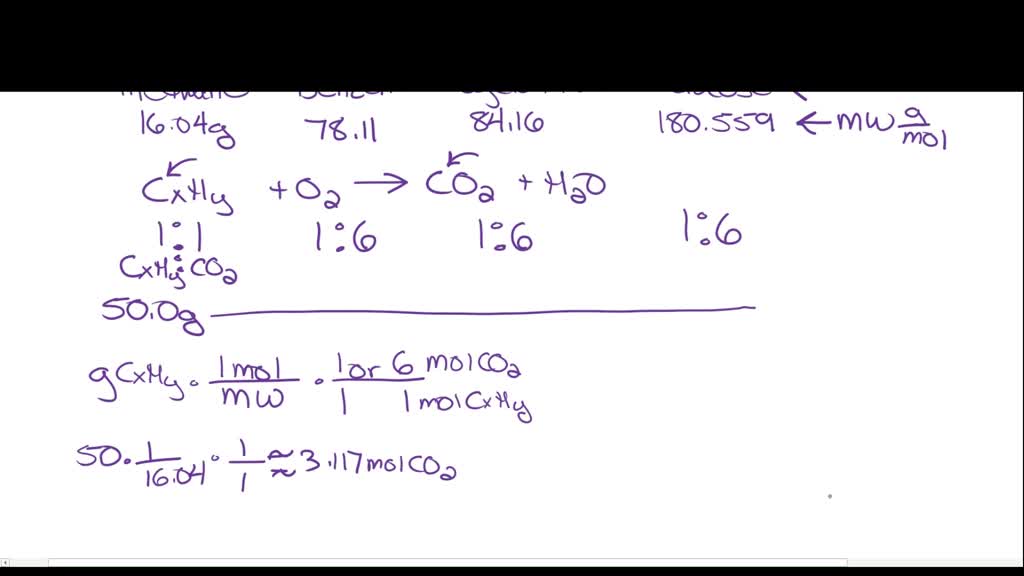 16.04g 78.11 84.16 180.559 ← MW g/mol
CxHy + O2 → CO2 + H2O
1:1 1:6 1:6 1:6
CxHy:CO2
50.0g
g CxHy · 1mol/MW · 1 or 6 molCO2/1 1molCxHy
50 · 1/16.04 · 1/1 ≈ 3.117molCO2